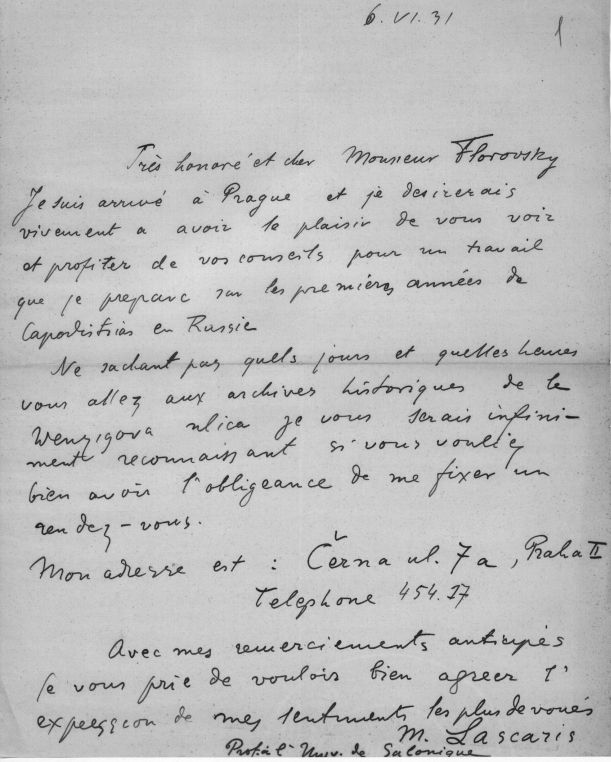 6.VI.31
1
Très honoré et cher Monsieur Florovsky
Je suis arrivé à Prague et je desirerais
vivement a avoir le plaisir de vous voir
et profiter de vos conseils pour un travail
que je prepare sur les premières années de
Capodistrias en Russie
Ne sachant pas quels jours et quelles heures
vous allez aux archives historiques de la
Wenzigova ulica je vous serais infini-
ment reconnaissant si vous vouliez
bien avoir l'obligeance de me fixer un
rendez-vous.
Mon adresse est : Černa ul. 7a, Praha II
Telephone 454.17
Avec mes remerciements anticipés
je vous prie de vouloir bien agreer l'
expression de mes sentiments les plus devoués
M. Lascaris
Prof. à l'Univ. de Salonique